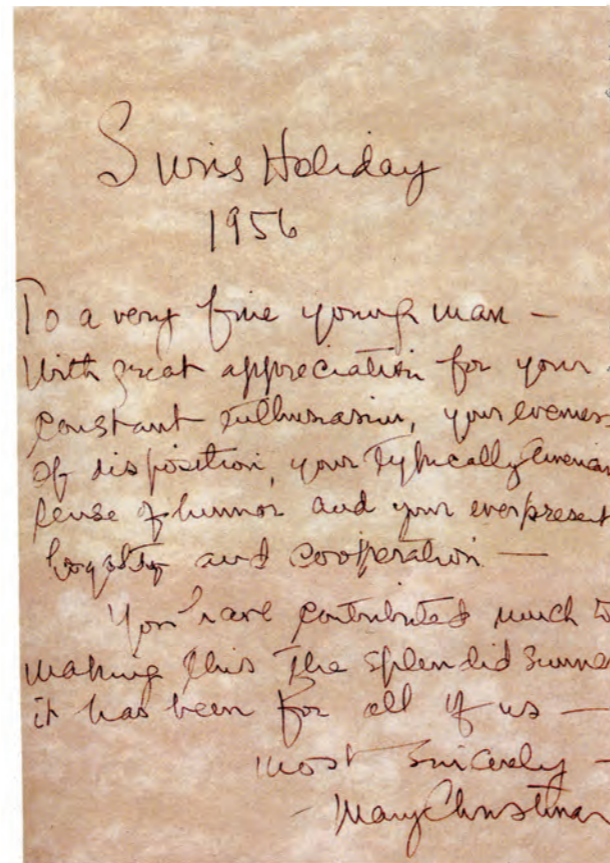 Swiss Holiday
1956
To a very fine young man —
With great appreciation for your
constant enthusiasm, your eveness
of disposition, your typically American
sense of humor and your everpresent
loyalty and cooperation —
You have contributed much to
making this the splendid summer
it has been for all of us —
most sincerely —
- Mary